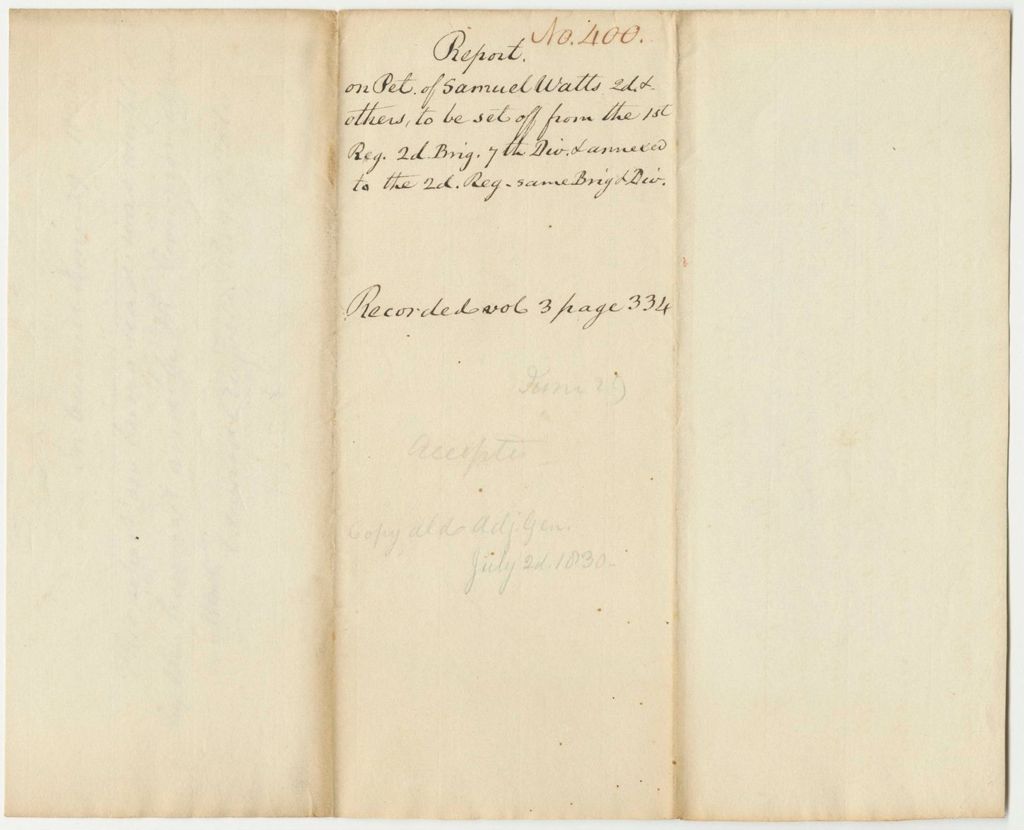 No. 400.
Report.
on Pet. of Samuel Watts 2d. &
others, to be set off from the 1st
Reg. 2d. Brig. 7th Div. & annexed
to the 2d. Reg - same Brig & Div.
Recorded vol 3 page 334
June 29
Accepted
Copy dld Adj. Gen.
July 2d. 1830.